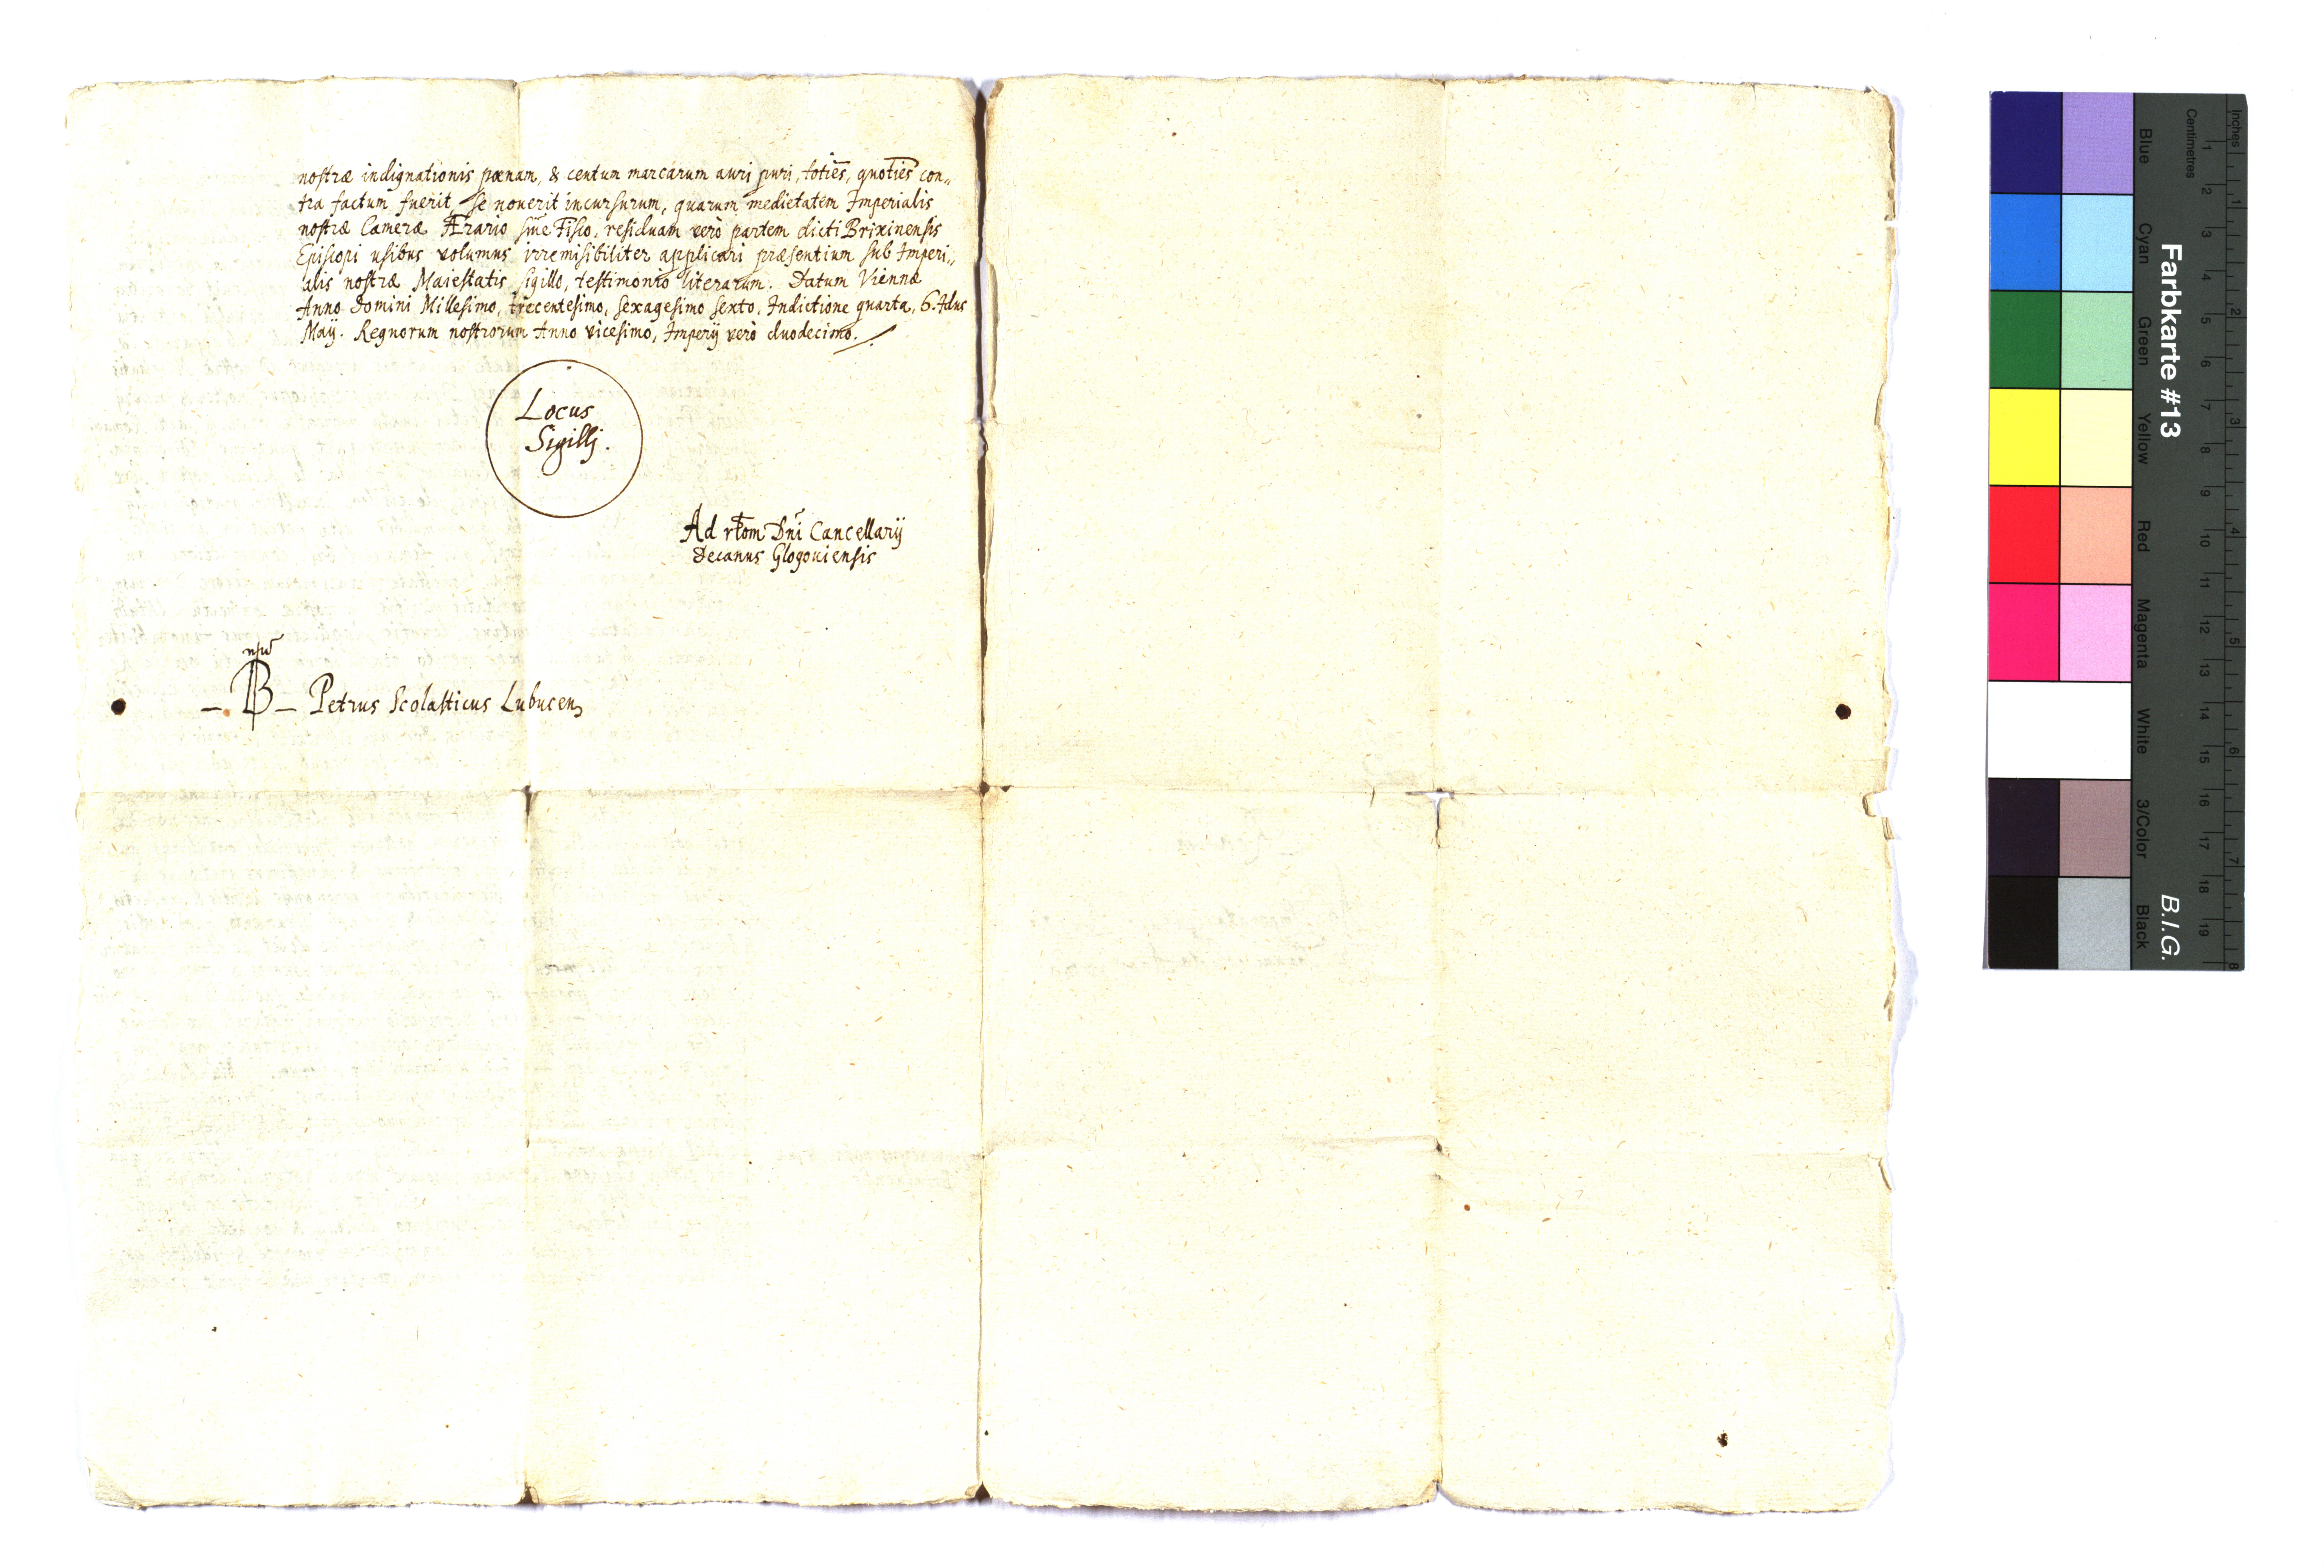 nostræ indignationis pœnam, & centum marcarum auri puri, toties, quoties con„
tra factum fuerit, se noverit incursurum, quarum medietatem Imperialis
nostræ Cameræ Ærario siue Fisco, residuam verò partem dicti Brixinensis
Episcopi usibus volumus irremisibiliter applicari præsentium sub Imperi„
alis nostræ Maiestatis sigillo, testimonio literarum. Datum Viennæ
Anno Domini Millesimo, trecentesimo, sexagesimo sexto, Indictione quarta, 6. Idus
Maij. Regnorum nostrorum Anno vicesimo, Imperij verò duodecimo.
Locus
Sigillj.
Ad rtom Dni Cancellarij
Decanus Glogouiensis
– B – Petrus Scolasticus Lubucen
Farbkarte #13
B.I.G.
Blue
Cyan
Green
Yellow
Red
Magenta
White
3/Color
Black
Centimetres
1 2 3 4 5 6 7 8 9 10 11 12 13 14 15 16 17 18 19
Inches
1 2 3 4 5 6 7 8